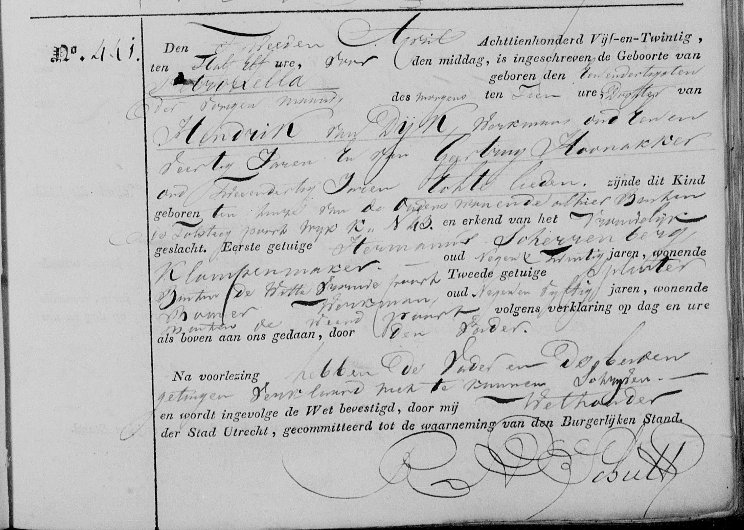 No. 441.
Den Tweeden April Achttienhonderd Vijf-en-Twintig,
ten Half Elf ure, Voor den middag, is ingeschreven de Geboorte van
geboren den Een en dertigsten
der vorigen maand des morgens ten Tien ure, Dogter van
Hendrik van Dijk, Werkman oud Een en
Veertig Jaren en van Hoonakker
oud Twee en dertig Jaren Echte lieden. zijnde dit Kind
geboren ten huize van de Ouders wonende alhier Buiten
de Tolsteeg poort Wyk K. N 43. en erkend van het Vrouwelijk
geslacht. Eerste getuige Hermanus Scherrenberg
Klompenmaker. oud Negen en Twintig jaren, wonende
Buiten de Witte Vrouwe poort Tweede getuige
Werkman oud Negen en Vyftig jaren, wonende
Buiten de Weerd poort volgens verklaring op dag en ure
als boven aan ons gedaan, door Den Vader.
Na voorlezing hebben de Vader en Des beiden
getuigen verklaard niet te kunnen Schryven.
en wordt ingevolge de Wet bevestigd, door mij Wethouder
der Stad Utrecht, gecommitteerd tot de waarneming van den Burgerlijken Stand.